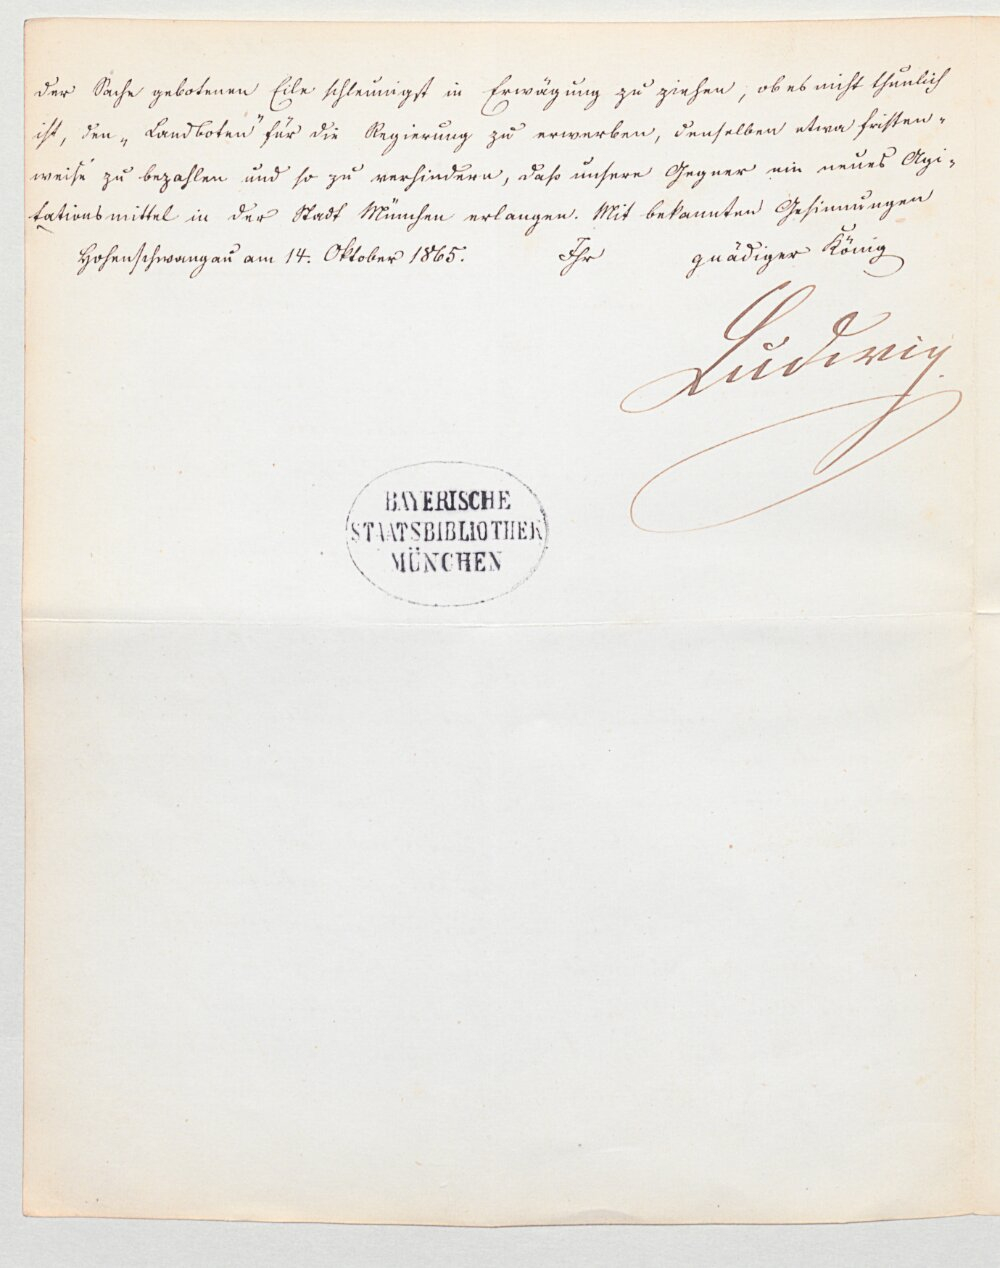 der Sache gebotenen Eile schleunigst in Erwägung zu ziehen, ob es nicht thunlich
ist, den „Landboten" für die Regierung zu erwerben, denselben etwa fristen-
weise zu bezahlen und so zu verhindern, daß unsere Gegner ein neues Agi-
tationsmittel in der Stadt München erlangen. Mit bekannten Gesinnungen
Hohenschwangau am 14. Oktober 1865. Ihr gnädiger König
Ludwig.
BAYERISCHE
STAATSBIBLIOTHEK
MÜNCHEN